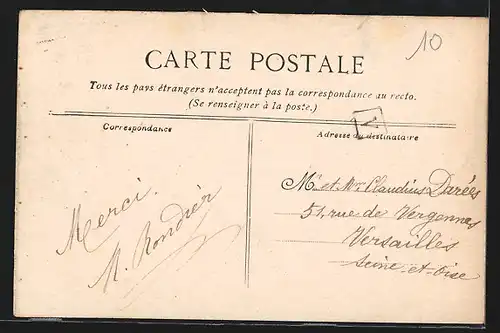 10
CARTE POSTALE
Tous les pays étrangers n'acceptent pas la correspondance au recto.
(Se renseigner à la poste.)
Correspondance
Adresse du destinataire
Merci.
M. Rondier
Mr et Mme Claudius Darées
51, rue de Vergennes
Versailles
Seine-et-Oise